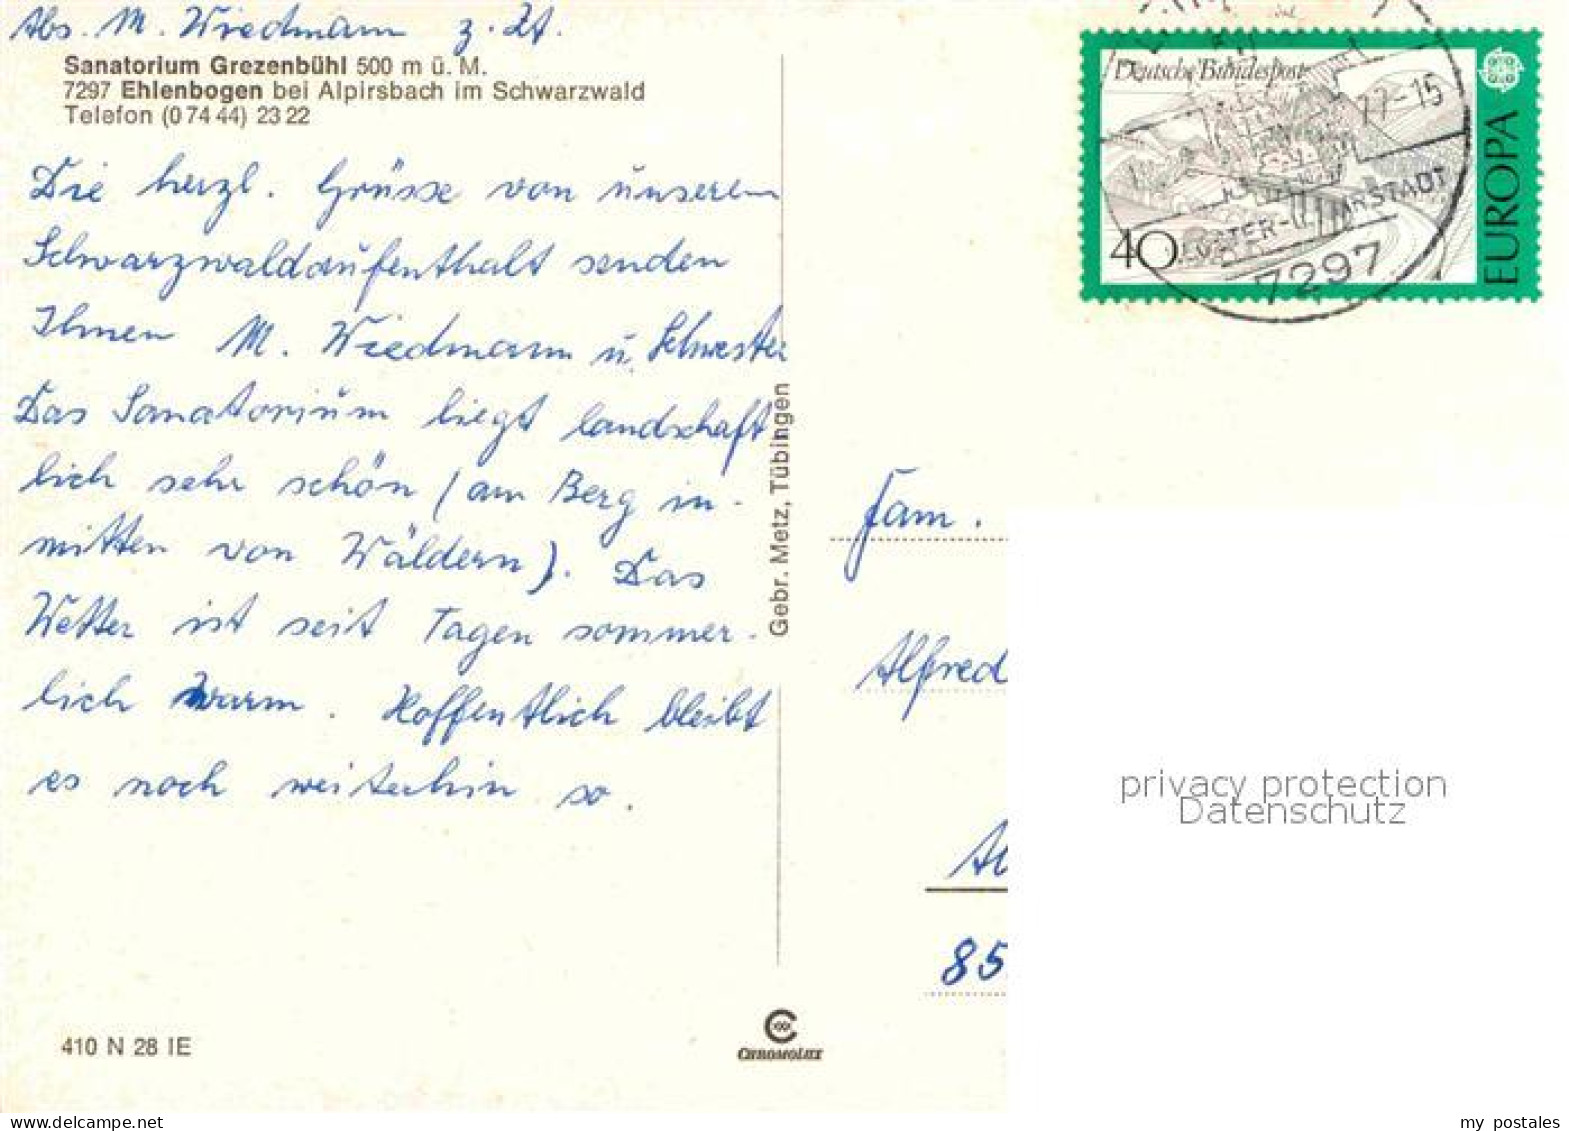 Abs. M. Wiedmann z. Zt.
Sanatorium Grezenbühl 500 m ü. M.
7297 Ehlenbogen bei Alpirsbach im Schwarzwald
Telefon (0 74 44) 23 22
Die herzl. Grüsse von unserem
Schwarzwaldaufenthalt senden
Ihnen M. Wiedmann u. Schwester
Das Sanatorium liegt landschaft
lich sehr schön (am Berg in-
mitten von Wäldern). Das
Wetter ist seit Tagen sommer-
lich warm. Hoffentlich bleibt
es noch weiterhin so.
410 N 28 IE
Gebr. Metz, Tübingen
CHROMOLUX
Deutsche Bundespost
40
EUROPA
77-15
7297
Fam.
Alfred
85
privacy protection
Datenschutz
www.delcampe.net
my_postales